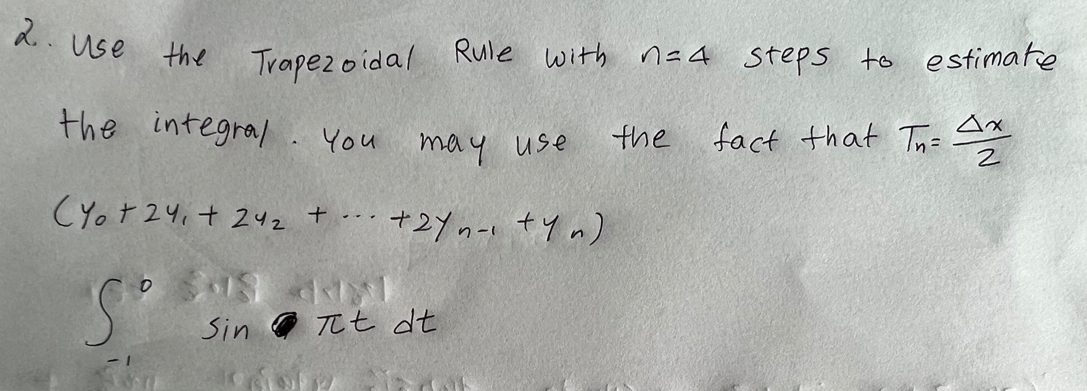 2. Use the Trapezoidal Rule with n=4 steps to estimate
the integral. You may use the fact that Tn= Δx/2
(y₀ + 2y₁ + 2y₂ + ... + 2yₙ₋₁ + yₙ)
∫₋₁⁰ sin πt dt